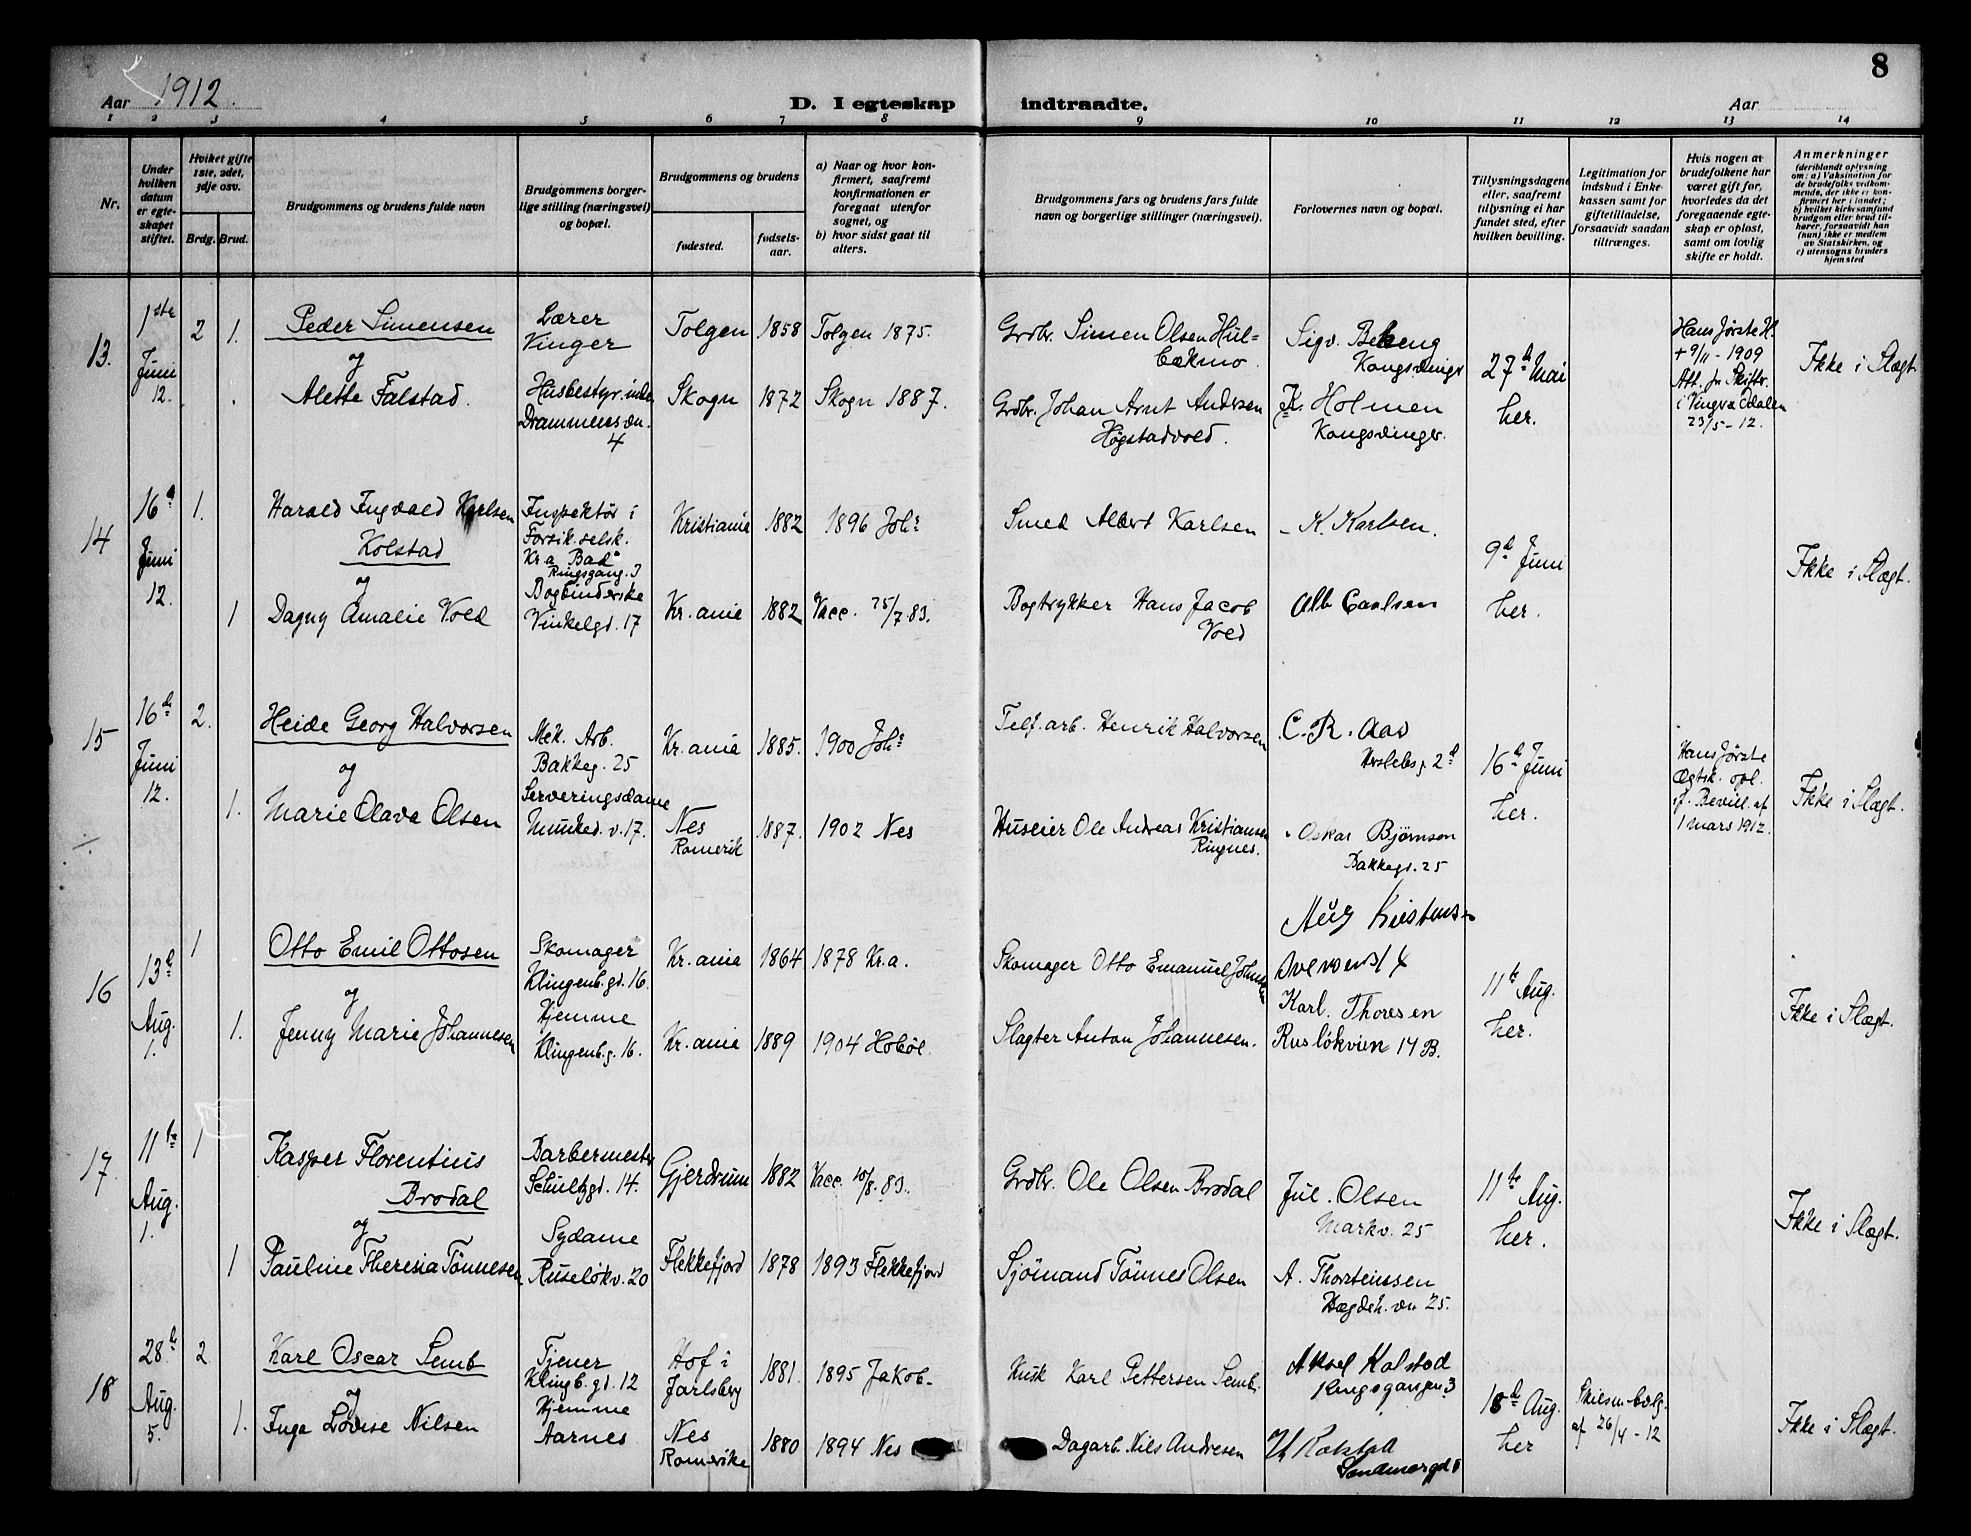 8
Aar 1912. D. I egteskap indtraadte. Aar
1 2 3 4 5 6 7 8 9 10 11 12 13 14
Nr.
Under hvilken datum er egteskapet stiftet.
Hvilket gifte 1ste, 2det, 3dje osv.
Brdg. Brud.
Brudgommens og brudens fulde navn
Brudgommens borgerlige stilling (næringsvei) og bopæl.
Brudgommens og brudens
fødested.
fødselsaar.
a) Naar og hvor konfirmert, saafremt konfirmationen er foregaat utenfor sognet, og
b) hvor sidst gaat til alters.
Brudgommens fars og brudens fars fulde navn og borgerlige stillinger (næringsvei).
Forlovernes navn og bopæl.
Tillysningsdagene eller, saafremt tillysning ei har fundet sted, efter hvilken bevilling.
Legitimation for indskud i Enkekassen samt for giftetilladelse, forsaavidt saadan tiltrænges.
Hvis nogen av brudefolkene har været gift før, hvorledes da det foregaaende egteskap er opløst, samt om lovlig skifte er holdt.
Anmerkninger
(deriblandt oplysning om: a) Vaksination for de brudefolks vedkommende, der ikke er konfirmert her i landet; b) hvilket kirkesamfund brudgom eller brud tilhører, forsaavidt han (hun) ikke er medlem av Statskirken, og c) utensogns bruders hjemsted
13. 1ste Juni 12. 2 1.
Peder Simensen
og
Alette Falstad.
Lærer
Vinger
Husbestyrinde
Drammensvn.
4
Tolgen 1858 Tolgen 1875.
Skogn 1872 Skogn 1887.
Grdbr. Simen Olsen Hul-
bækmo.
Grdbr. Johan Arnt Andersen
Høgstadvold.
Sigv. Bekeng
Kongsvinger
K. Holmen
Kongsvinger.
27d Mai
her.
Hans første H.
+ 9/11 - 1909
Att. fr Skifter.
i Vinger Odalen
23/5 - 12.
Ikke i Slægt
14 16d Juni 12. 1. 1
Harald Ingvald Karlsen
Kolstad
og
Dagny Amalie Vold
Inspektør i
Forsik. selsk.
Kr.a Bad
Ringsgang. 3
Bogbinderske
Vinkelgd. 17
Kristiania 1882 1896 Johs
Kr.ania 1882 Vacc. 25/7.83.
Smed Albert Karlsen
Bogtrykker Hans Jacob
Vold
K. Karlsen.
Alb Carlsen
9d Juni
her.
Ikke i Slægt.
15 16de Juni 12. 2. 1.
Heide Georg Halvorsen
og
Marie Olava Olsen
Mek. Arb.
Bakkeg. 25
Serveringsdame
Munked. v. 17.
Kr.ania 1885. 1900 Johs
Nes
Romerik
1887. 1902 Nes
Telf. arb. Henrik Halvorsen
Huseier Ole Andreas Kristiansen
Ringnes.
C. R. Aas
Herslebsg. 2d
Oskar Bjørnson
Bakkegd. 25
16d Juni
her.
Hans første
Ægtsk. opl.
if. Bevill. af
1 mars 1912.
Ikke i Slægt.
16 13d Aug. 1. 1 1.
Otto Emil Ottosen
og
Jenny Marie Johannesen
Skomager
Klingenb. gd. 16.
Hjemme
Klingenb. g. 16.
Kr.ania 1864 1878 Kr.a.
Kr.ania 1889 1904 Hobøl.
Skomager Otto Emanuel Johnsen
Slagter Anton Johannesen.
Karl. Thoresen
Rusløkvien 14 B.
11te Aug.
her.
Ikke i Slægt.
17. 11te Aug. 1. 1 1
Kasper Florentius
Brodal
og
Pauline Theresia Tønnesen
Barbermester
Schultzgd. 14.
Sydame
Ruseløkv. 20
Gjerdrum 1882 Vacc. 10/8. 83.
Flekkefjord 1878 1893 Flekkefjord
Grdbr. Ole Olsen Brodal
Sjömand Tönnes Olsen
Jul. Olsen
Markv. 25
A. Thorsteinssen
Hægdeh. vn 25.
11te Aug.
her.
Ikke i Slægt.
18 28d Aug. 5. 2 1.
Karl Oscar Semb
og
Inga Lovise Nilsen
Tjener
Klingb. gd. 12
Hjemme
Aarnes
Hof i
Jarlsberg
1881. 1895 Jakob.
Nes
Romerike
1880 1894 Nes
Kusk Karl Pettersen Semb.
Dagarb. Nils Andresen
Aksel Kolstad
Ringsgangen 3
18d Aug.
her
af 26/4 - 12
Ikke i Slægt.